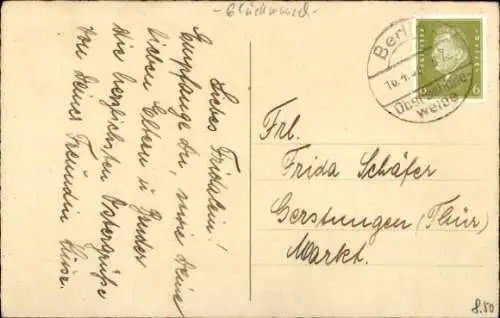 - Glückwunsch -
Liebes Fridalein!
Empfange Du, sowie Deine
lieben Eltern u. Bruder
die herzlichsten Ostergrüße
von Deiner Freundin Luise.
Berlin
Oberschöne-
weide
6
Frl.
Frida Schäfer
Gerstungen (Thür.)
Markt.
8.80